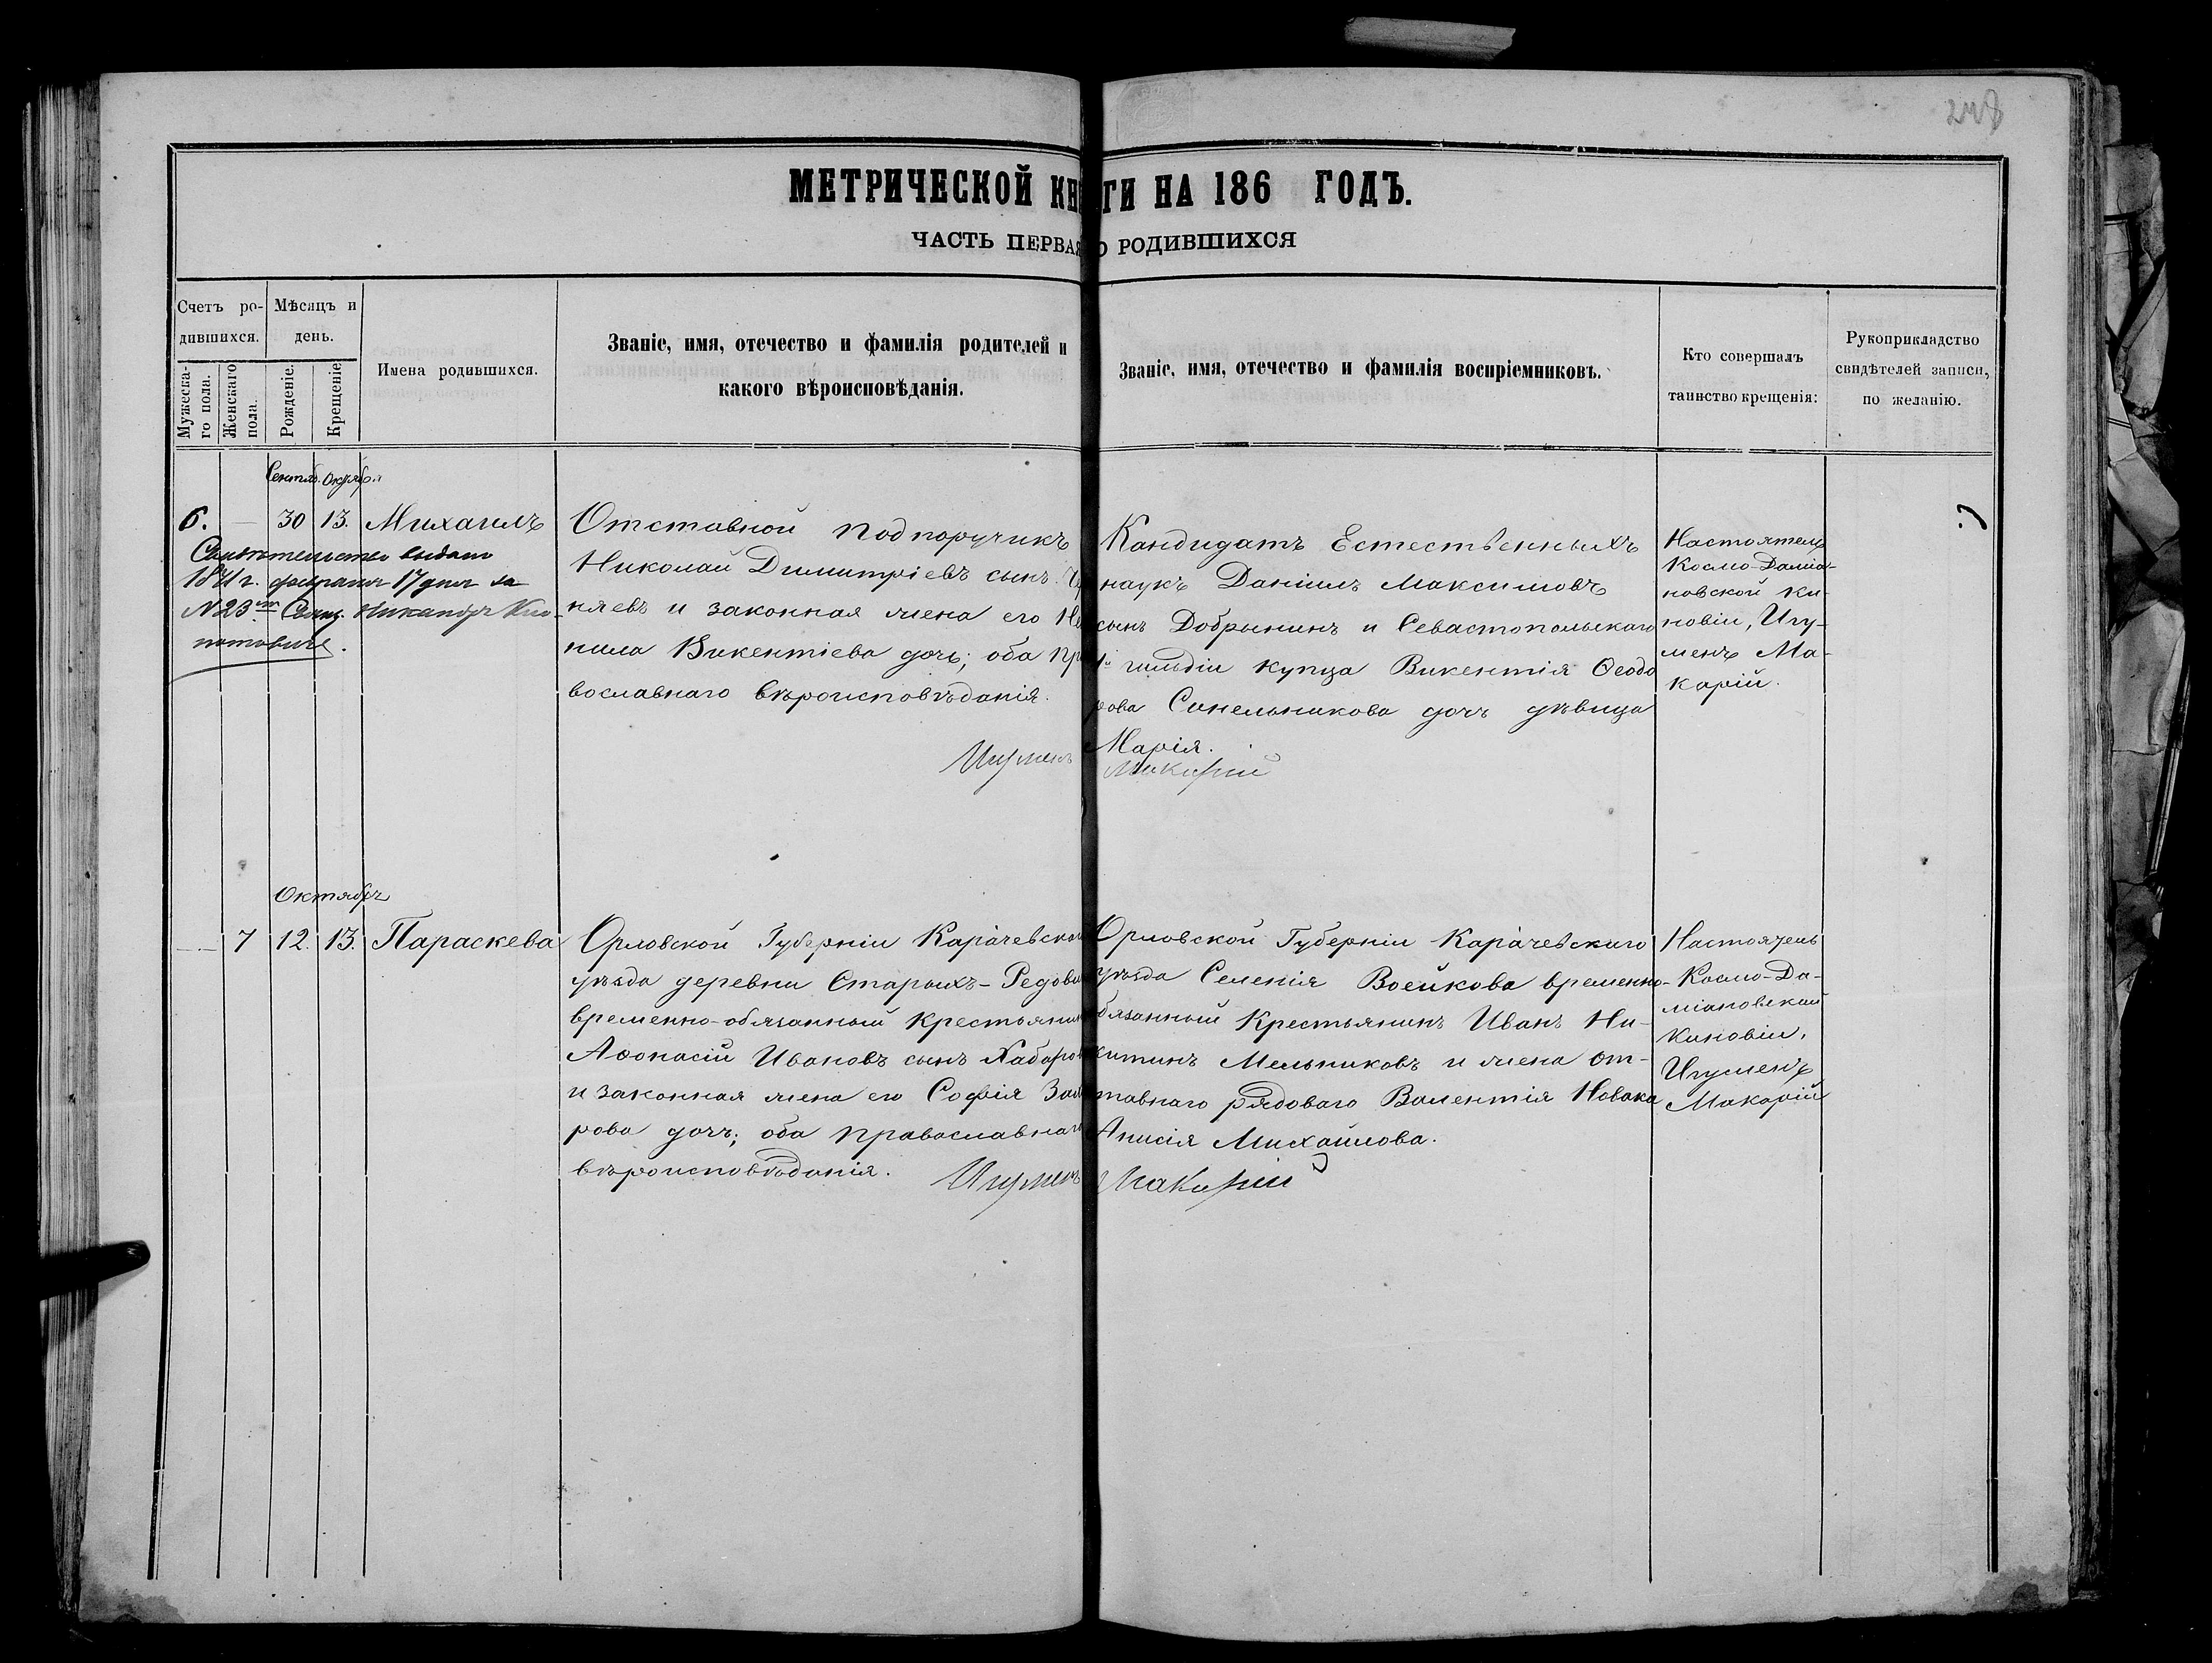 248
МЕТРИЧЕСКОЙ КНИГИ НА 186 ГОДЪ.
ЧАСТЬ ПЕРВАЯ О РОДИВШИХСЯ
Счетъ ро-
дившихся.
Мужеска-
го пола.
Женскаго
пола.
Мѣсяцъ и
день.
Рожденіе.
Крещеніе.
Имена родившихся.
Званіе, имя, отечество и фамилія родителей и
какого вѣроисповѣданія.
Званіе, имя, отечество и фамилія воспріемниковъ.
Кто совершалъ
таинство крещенія:
Рукоприкладство
свидѣтелей записи,
по желанію.
Сентяб. Октября
6. — 30 13. Михаилъ
Свидѣтельство выдано
г. февраля 17 дня за
N 23 Свящ. Никандръ
Отставной подпоручикъ
Николай Димитріевъ сынъ
няевъ и законная жена его Не
нила Викентіева дочь; оба пр
вославнаго вѣроисповѣданія.
Игуменъ
Кандидатъ Естественныхъ
наукъ Даніилъ Максимовъ
сынъ Добрынинъ и Севастопольскаго
1й гильдіи купца Викентія Ѳеодо
рова Синельникова дочь дѣвица
Марія.
Макарій
Настоятель
Космо-Даміа-
новской Ки-
новіи, Игу-
менъ Ма-
карій.
Октябрь
— 7 12. 13. Параскева
Орловской Губерніи Карачевска
уѣзда деревни Старыхъ-Редови
временно-обязанный крестьянин
Аѳонасій Ивановъ сынъ Хабаров
и законная жена его Софія
рова дочь; оба православнаг
вѣроисповѣданія. Игуменъ
Орловской Губерніи Карачевскаго
уѣзда Селенія Воейкова временно-
обязанный Крестьянинъ Иванъ Ни-
китинъ Мельниковъ и жена от-
тавнаго рядоваго Валентія Новака
Анисія Михайлова.
Макарій
Настоятель
Космо-Да-
міановской
Киновіи,
Игуменъ
Макарій